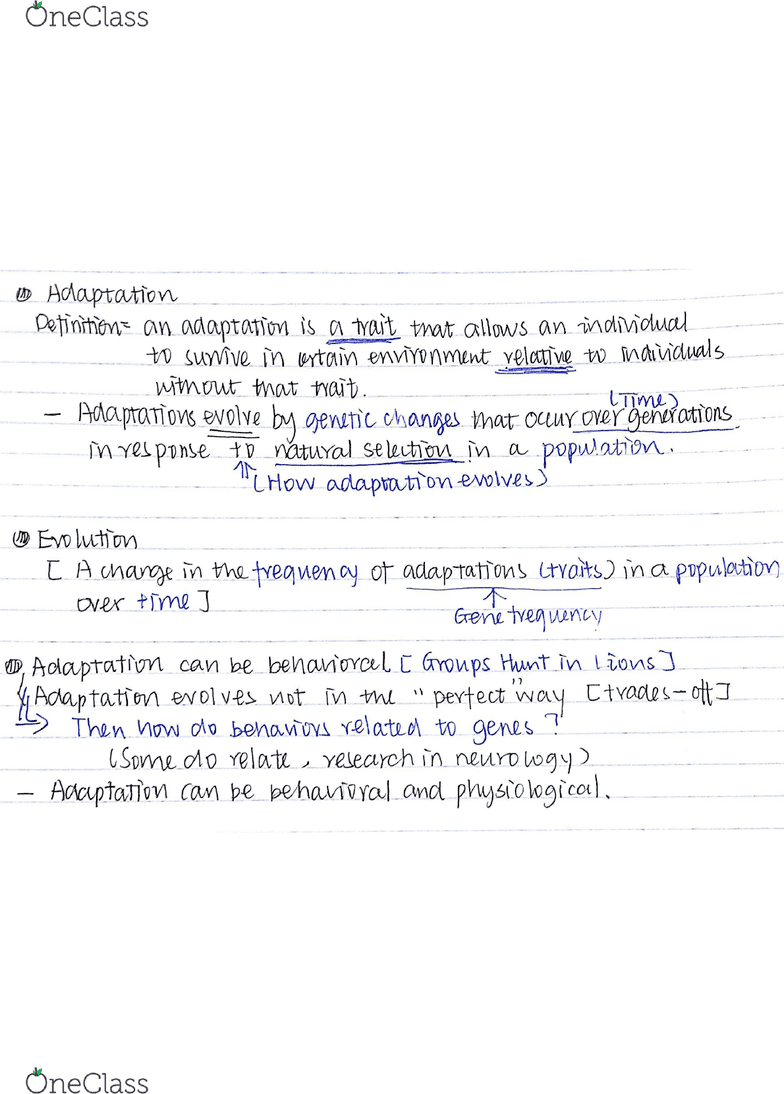 OneClass
Adaptation
Definition= an adaptation is a trait that allows an individual
to survive in certain environment relative to individuals
without that trait.
(Time)
- Adaptations evolve by genetic changes that occur over generations
in response to natural selection in a population.
(How adaptation evolves)
Evolution
[ A change in the frequency of adaptations (traits) in a population
over time ]
Gene frequency
Adaptation can be behaviorcal [ Groups Hunt in lions ]
Adaptation evolves not in the "perfect" way [trades-off]
Then how do behaviors related to genes?
(Some do relate, research in neurology)
- Adaptation can be behavioral and physiological.
OneClass